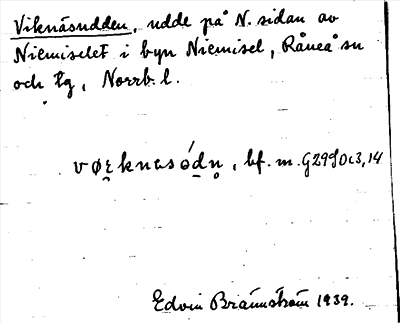 Viknäsudden, udde på N. sidan av
Niemiselet i byn Niemisel, Råneå sn
och tg, Norrb. l.
bf. m.
Edvin Brännström 1939.